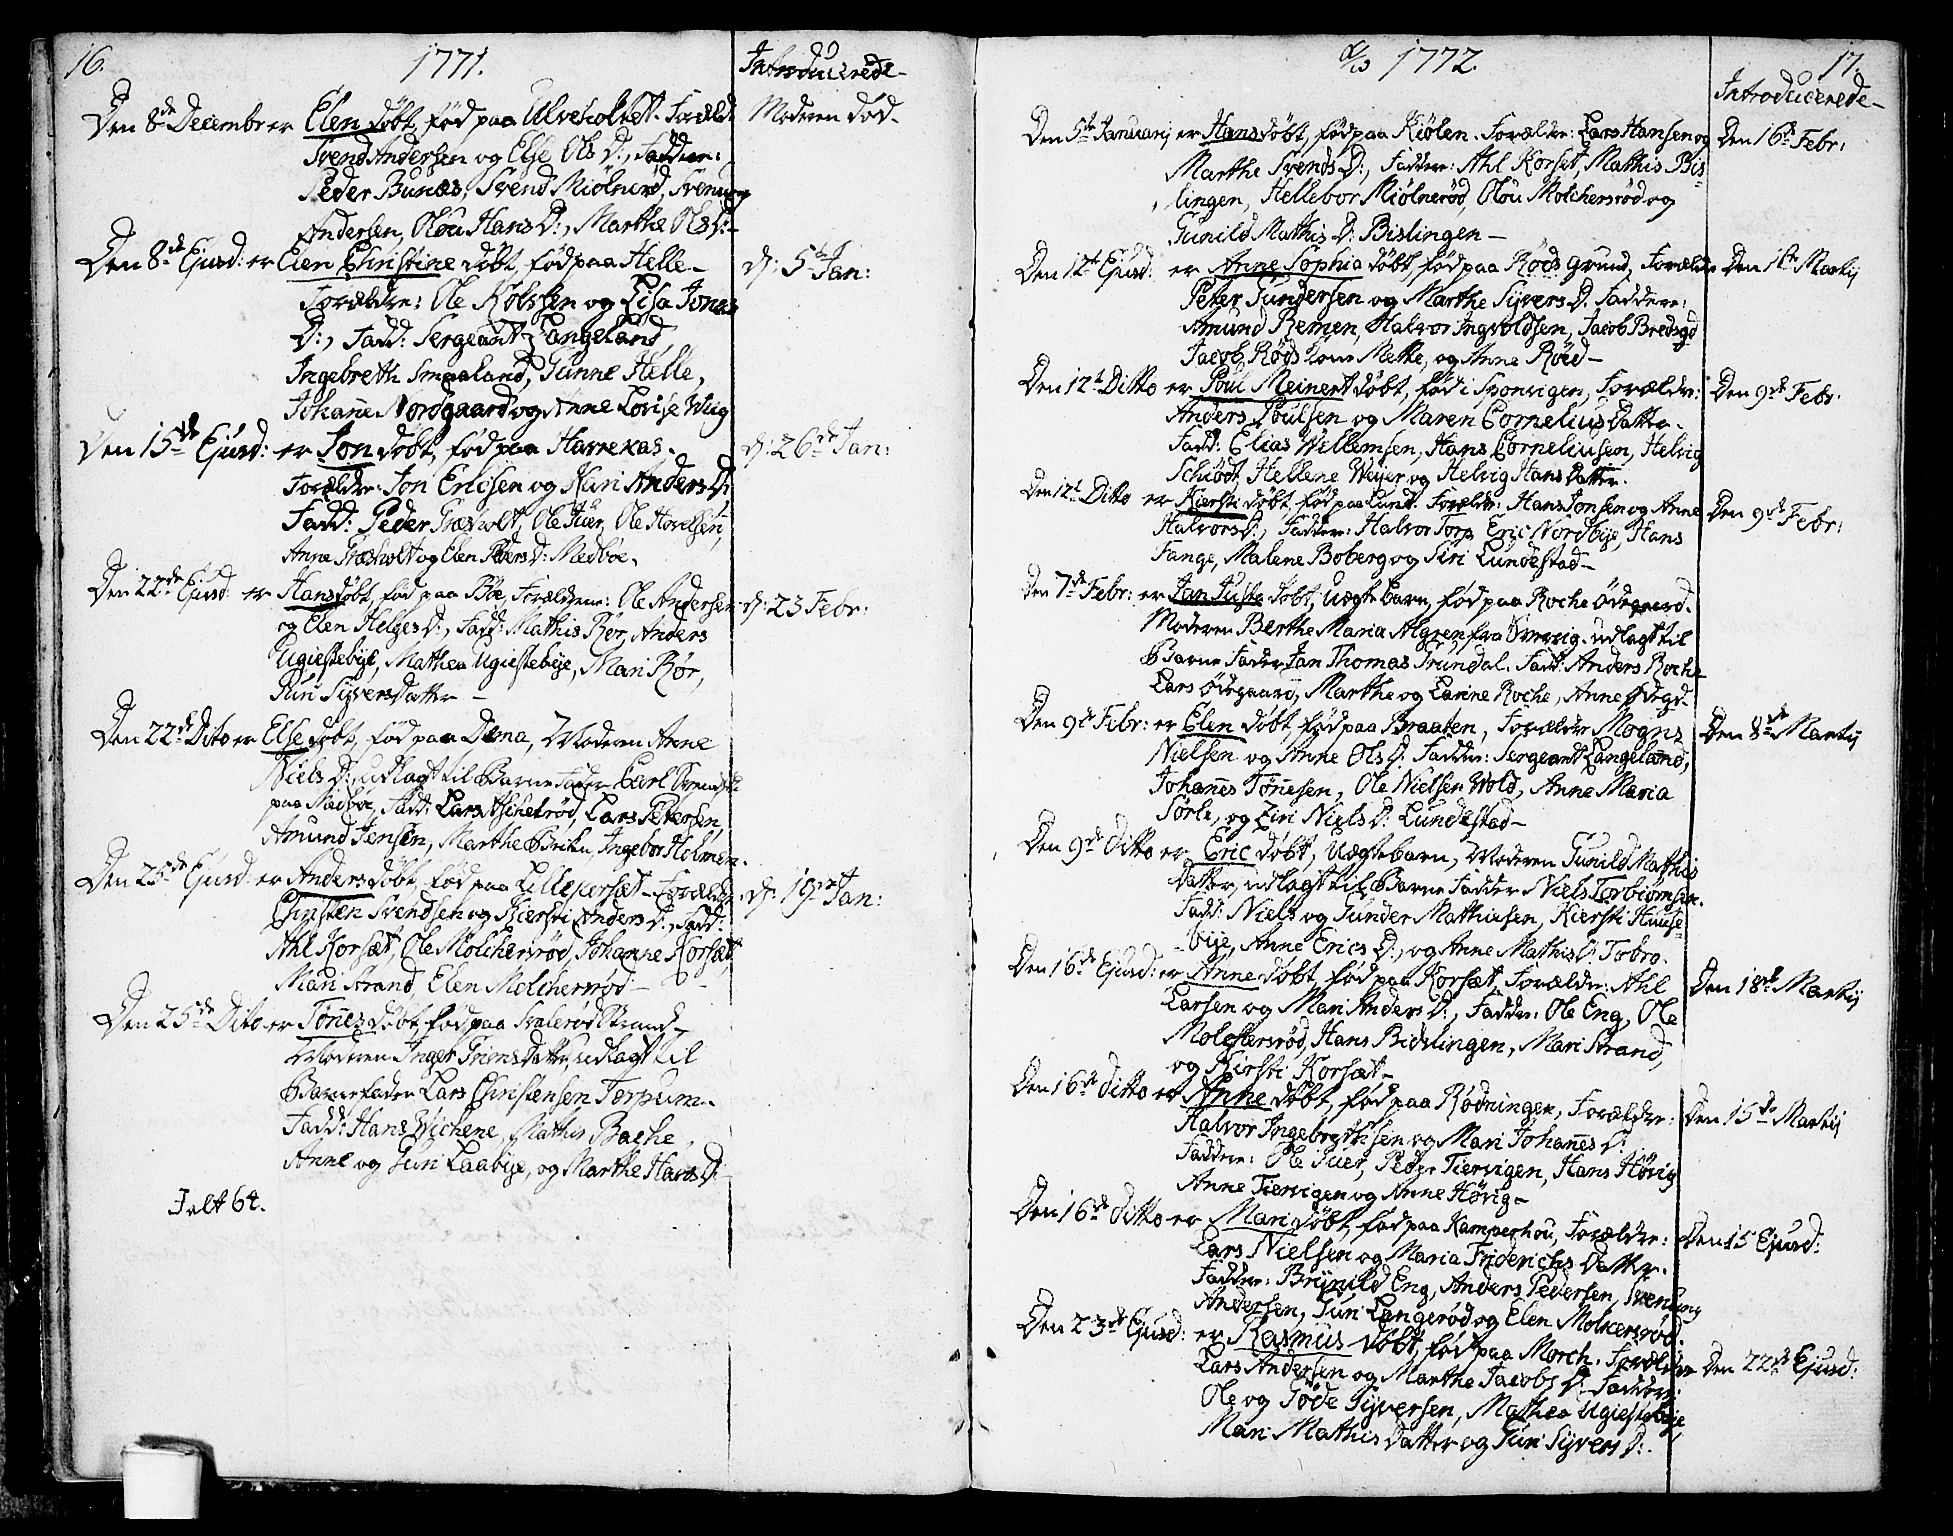 16.
1771.
Introducerede
Den 8de Decembr er Elen døbt, fød paa Ulveholtet. Foræld:
Moderen død
Svend Andersen og Else Ols D:, Faddere:
Peder Bunæs, Svend Miølnerød, Svenung
Andersen, Olou Hans D:, Marthe Ols D:
Den 8de Ejusd: er Elen Christine døbt, fød paa Helle
d: 5te Jan:
Forældre: Ole Kolssen og Lisa Jonas
D:, Fadd: Sergeant Langeland,
Ingebreth Smaaland, Gunne Helle,
Johañe Nordgaard og Anne Lovise Wiig
Den 15de Ejusd: er Jon døbt, fød paa Harrekas.
d: 26de Jan:
Forældre: Jon Ericsen og Kari Anders D:
Fadd: Peder Græsholt, Ole Tuer, Ole Hovelsen,
Anne Græsholt og Elen Peders D: Medbøe.
Den 22de Ejusd: er Hans døbt, fød paa Bøe, Forældrene: Ole Andersen
d: 23 Febr:
og Elen Helges D:, Fadd: Mathis Rør, Anders
Ugiestebye, Mathea Ugiestebye, Mari Rør,
Guri Syvers Datter
Den 22de Dito er Else døbt, fød paa Dona, Moderen Anne
Niels D: udlagt til Barne Fader Carl Svendsen
paa Madbøe, Fadd: Lars Aschetrød, Lars Petersen,
Amund Jensen, Marthe Breken, Ingebor Holmen.
Den 25de Ejusd: er Anders døbt, fød paa Lillekorsæt. Forældre:
d: 19de Jan:
Christen Svendsen og Kiersti Anders D:, Fadd:
Ahl Korsæt, Ole Molchersrød, Johanne Korsæt,
Mari Strand, Elen Molchersrød
Den 25de Dito er Tøñes døbt, fød paa Svalerød Strand
Moderen Inger Friens Datter, udlagt til
Barnefader Lars Christensen Torpum.
Fadd: Hans Wichene, Mathis Bache,
Anne og Guri Laabye, og Marthe Hans D:
Talt 64.
Ao 1772.
17.
Introducerede
Den 5te Januarij er Hans døbt, fød paa Kiølen. Forældre: Lars Hansen og
Den 16de Febr:
Marthe Svends D:, Faddere: Ahl Korsæt, Mathis Bis-
lingen, Hellebor Miølnerød, Olou Molchersrød og
Gunild Mathis D: Bislingen
Den 12te Ejusd: er Anne Sophia døbt, fød paa Røds grund, Forældre
Den 1ste Martij
Peter Gundersen og Marthe Syvers D. Faddere:
Amund Remen, Halvor Ingvoldsen, Jacob Bredsgd
Jacob Røds kone Mette, og Anne Røed
Den 12te Ditto er Poul Meinert døbt, fød i Sponvigen, Forældre:
Den 9de Febr:
Anders Poulsen og Maren Cornelius Datter.
Fadd: Elias Willemsen, Hans Corneliusen, Helvig
Schiødt, Hellene Weyer og Helvig Hans Datter.
Den 12te Ditto er Kiersti døbt, fød paa Lund. Forældr: Hans Jonsen og Anne
Den 9de Febr:
Halvors D:, Faddere: Halvor Torp, Eric Nordbye, Hans
Fange, Malene Boberg og Siri Lundestad
Den 7de Febr: er Jan Juste døbt, Uægte barn, fød paa Roche Ødegaard.
Moderen Berthe Maria Algren fra Sverrig. udlagt til
Barne Fader Jan Thomas Trundal. Fadd: Anders Roche
Lars Ødegaard, Marthe og Larine Roche, Anne Ødegd
Den 9de Febr: er Elen døbt, fød paa Braaten, Forældre Mogns
Den 8de Martij
Nielsen og Anne Ols D: Faddere: Sergeant Langeland,
Johañes Tøñesen, Ole Nielsen Wold, Anne Maria
Sørli, og Ziri Niels D: Lundestad
Den 9de Ditto er Eric døbt, Uægtebarn, Moderen Gunild Mathis
Datter, udlagt til Barne Fadder Niels Torbiørnsen.
Fadd: Niels og Gunder Mathiesen, Kiersti Huuse-
bye, Anne Erics D:, og Anne Mathis D: Tobro.
Den 16de Ejusd: er Anne døbt, fød paa Korsæt, Forældre: Ahl
Den 18de Martij
Larsen og Mari Anders D:, Faddere: Ole Eng, Ole
Molchersrød, Hans Bislingen, Mari Strand,
og Kirsti Korsæt
Den 16de ditto er Anne døbt, fød paa Rødningen, Forældre:
Den 15de Martij
Halvor Ingebrethsen og Mari Johañes D:
Faddere: Ole Tuer, Peder Tiervigen, Hans Høvig
Anne Tiervigen og Anne Høvig
Den 16de ditto er Mari døbt, fød paa Kamperhou, Forældre:
Den 15 Ejusd:
Lars Nielsen og Maria Friderichs Datter.
Faddere: Brynild Eng, Anders Pedersen, Svenung
Andersen, Guri Langerød og Elen Molkersrød.
Den 23de Ejusd: er Rasmus døbt, fød paa Morch. Forældre
Den 22de Ejusd:
Lars Andersen og Marthe Jacobs D: Faddere:
Ole og Tøde Syversen, Mathea Ugiestebye,
Mari Mathis Datter og Guri Syvers D: